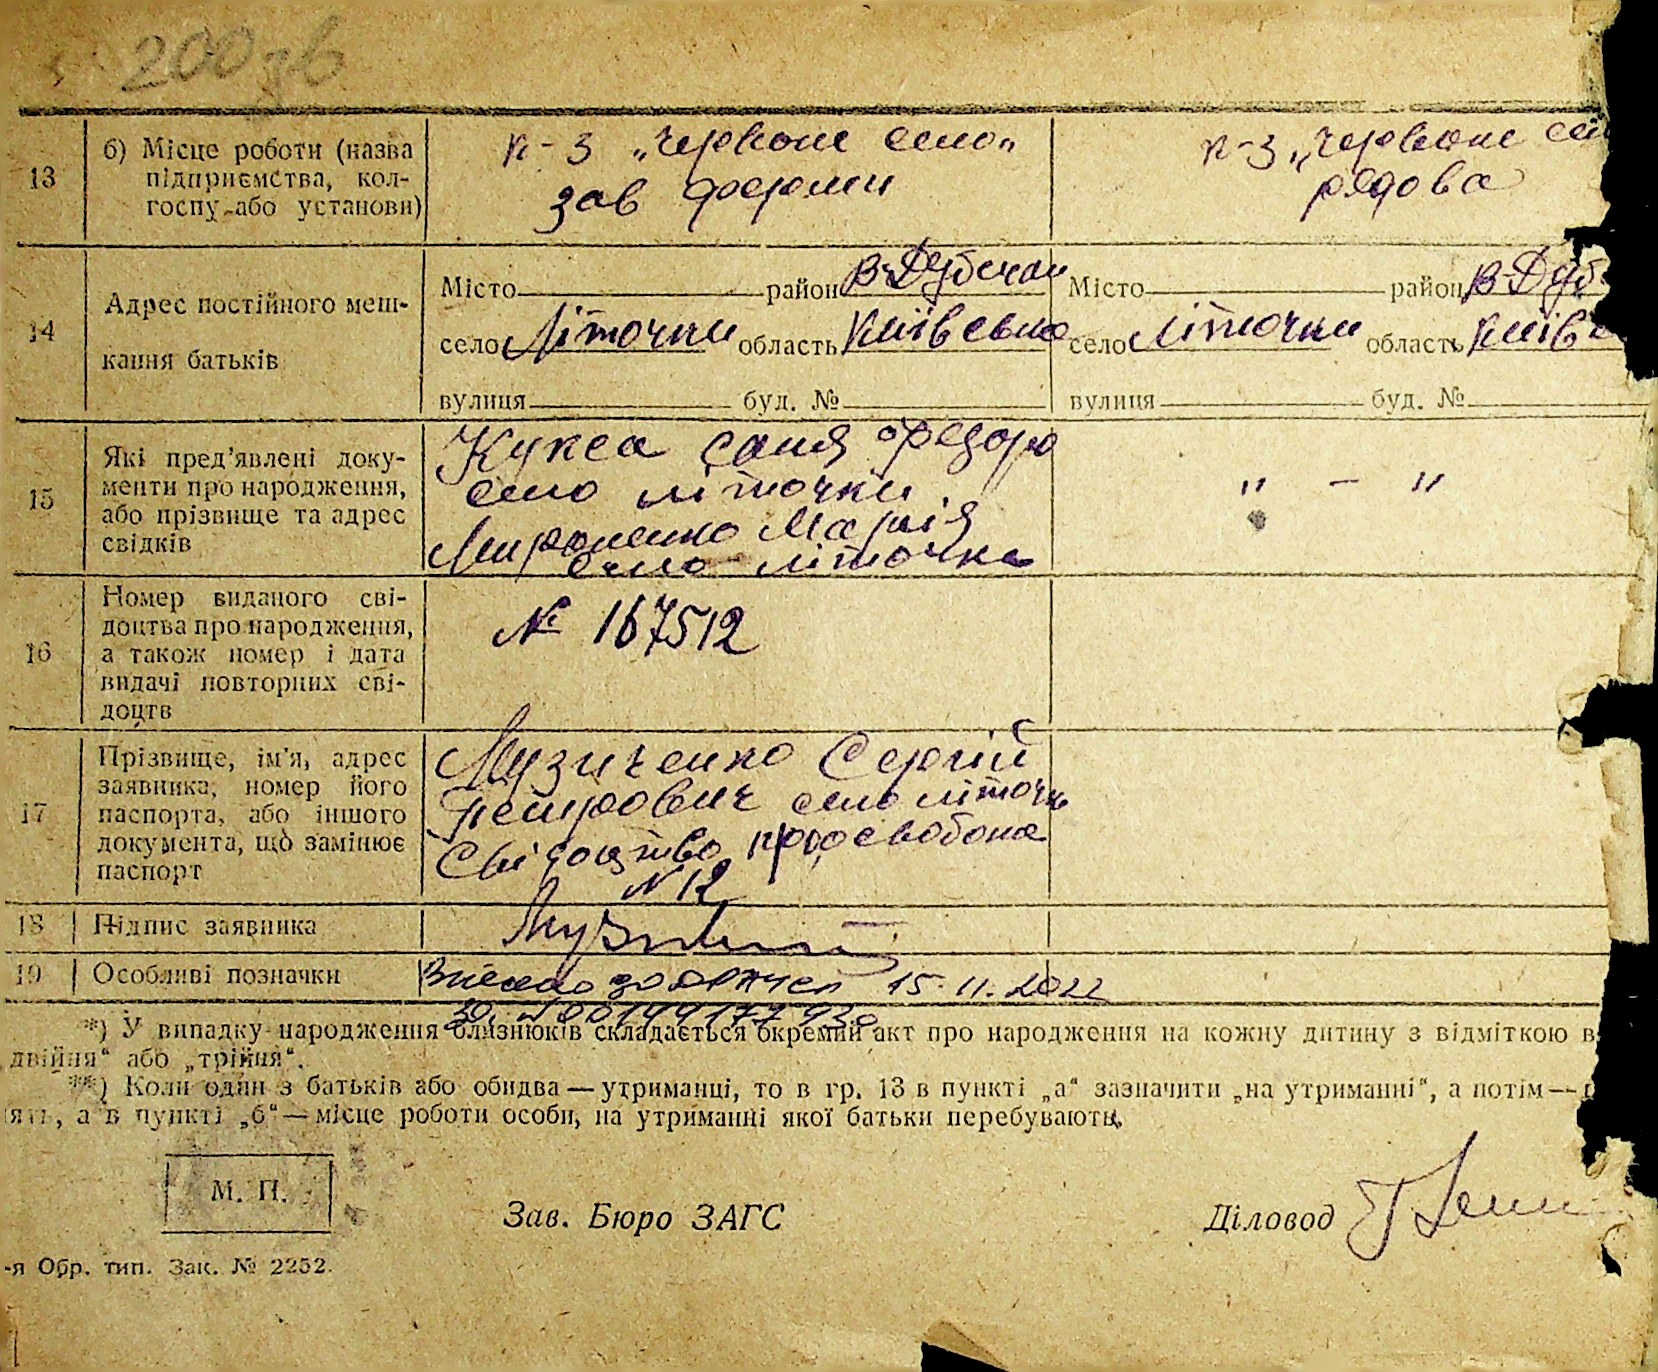 200 зв
13
б) Місце роботи (назва
підприємства, кол-
госпу або установи)
к-з „Червоне село“
зав ферми
к-з „Червоне сел
рядова
14
Адрес постійного меш-
кання батьків
Місто район В-Дубечан
село Літочки область Київська
вулиця буд. №
Місто район В-Дуб
село Літочки область Київс
вулиця буд. №
15
Які пред'явлені доку-
менти про народження,
або прізвище та адрес
свідків
Кукса Саня Федоро
село літочки.
Мироненко Марія
село літочки
" — "
16
Номер виданого сві-
доцтва про народження,
а також номер і дата
видачі повторних сві-
доцтв
№ 167512
17
Прізвище, ім'я, адрес
заявника, номер його
паспорта, або іншого
документа, що замінює
паспорт
Музиченко Сергій
Петрович село літочк
Свідоцтво
N 12
18
Підпис заявника
19
Особливі позначки
Внесено до ДРАЦСГ 15.11.2022
*) У випадку народження близнюків складається окремий акт про народження на кожну дитину з відміткою в
двійня“ або „трійня“.
**) Коли один з батьків або обидва — утриманці, то в гр. 13 в пункті „а“ зазначити „на утриманні“, а потім —
яті, а в пункті „б“ — місце роботи особи, на утриманні якої батьки перебувають.
М. П.
Зав. Бюро ЗАГС
Діловод
-я Обр. тип. Зак. № 2252.